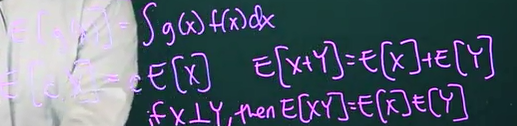 E[g(x)] = ∫g(x)f(x)dx
E[cX] = cE[X]   E[X+Y]=E[X]+E[Y]
if X⊥Y, then E[XY]=E[X]E[Y]